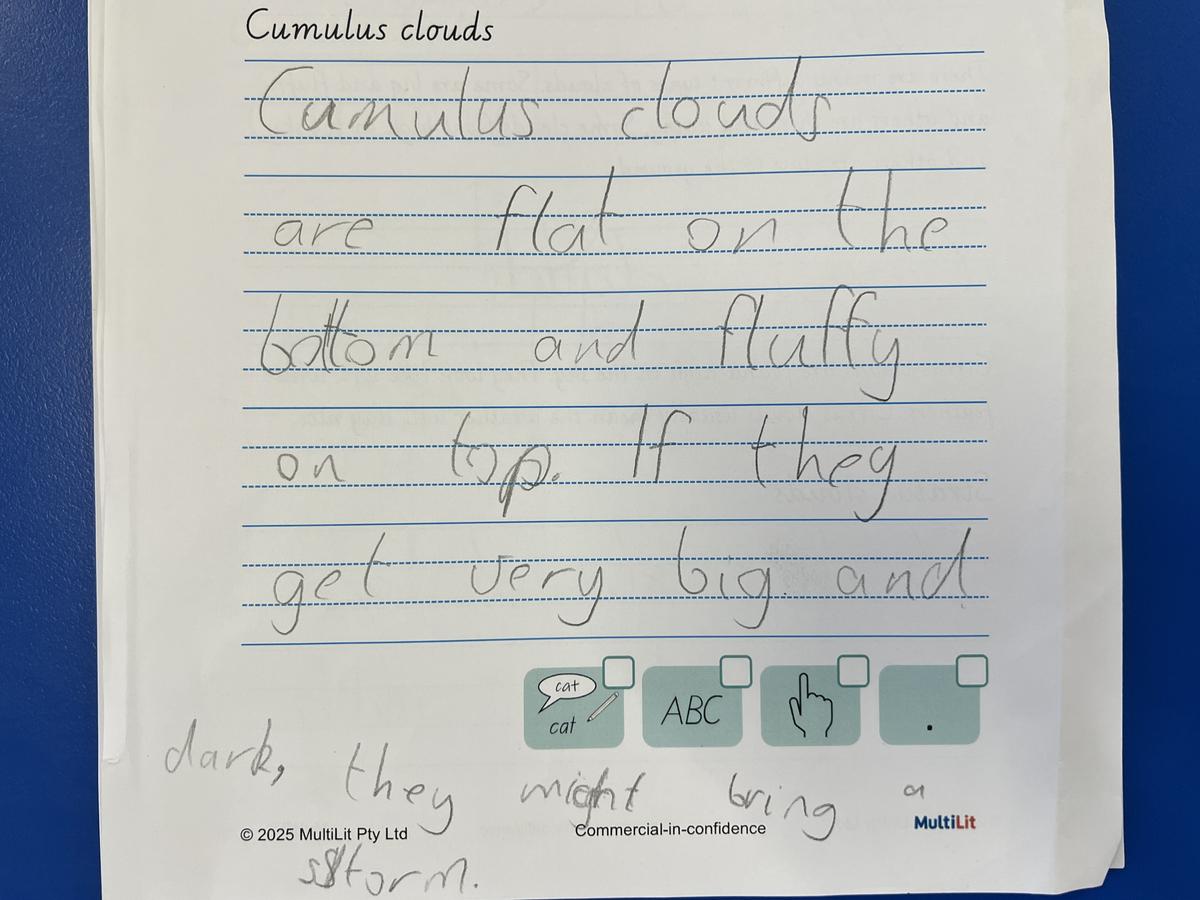 Cumulus clouds
Cumulus clouds
are flat on the
bottom and fluffy
on top. If they
get very big and
cat
cat
ABC
.
dark, they might bring a
© 2025 MultiLit Pty Ltd
Commercial-in-confidence
MultiLit
storm.